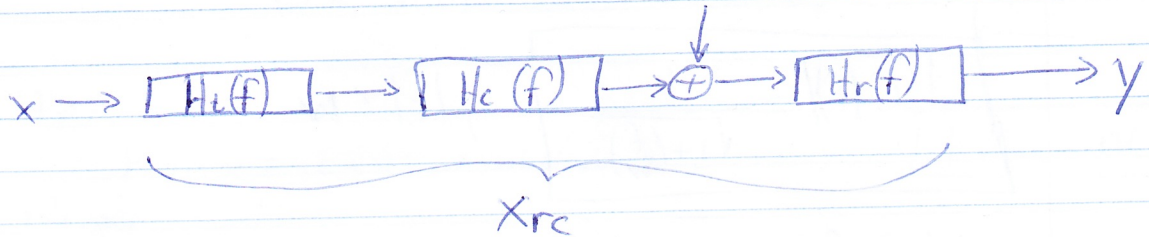 x → Ht(f) → Hc(f) → + → Hr(f) → y
Xrc